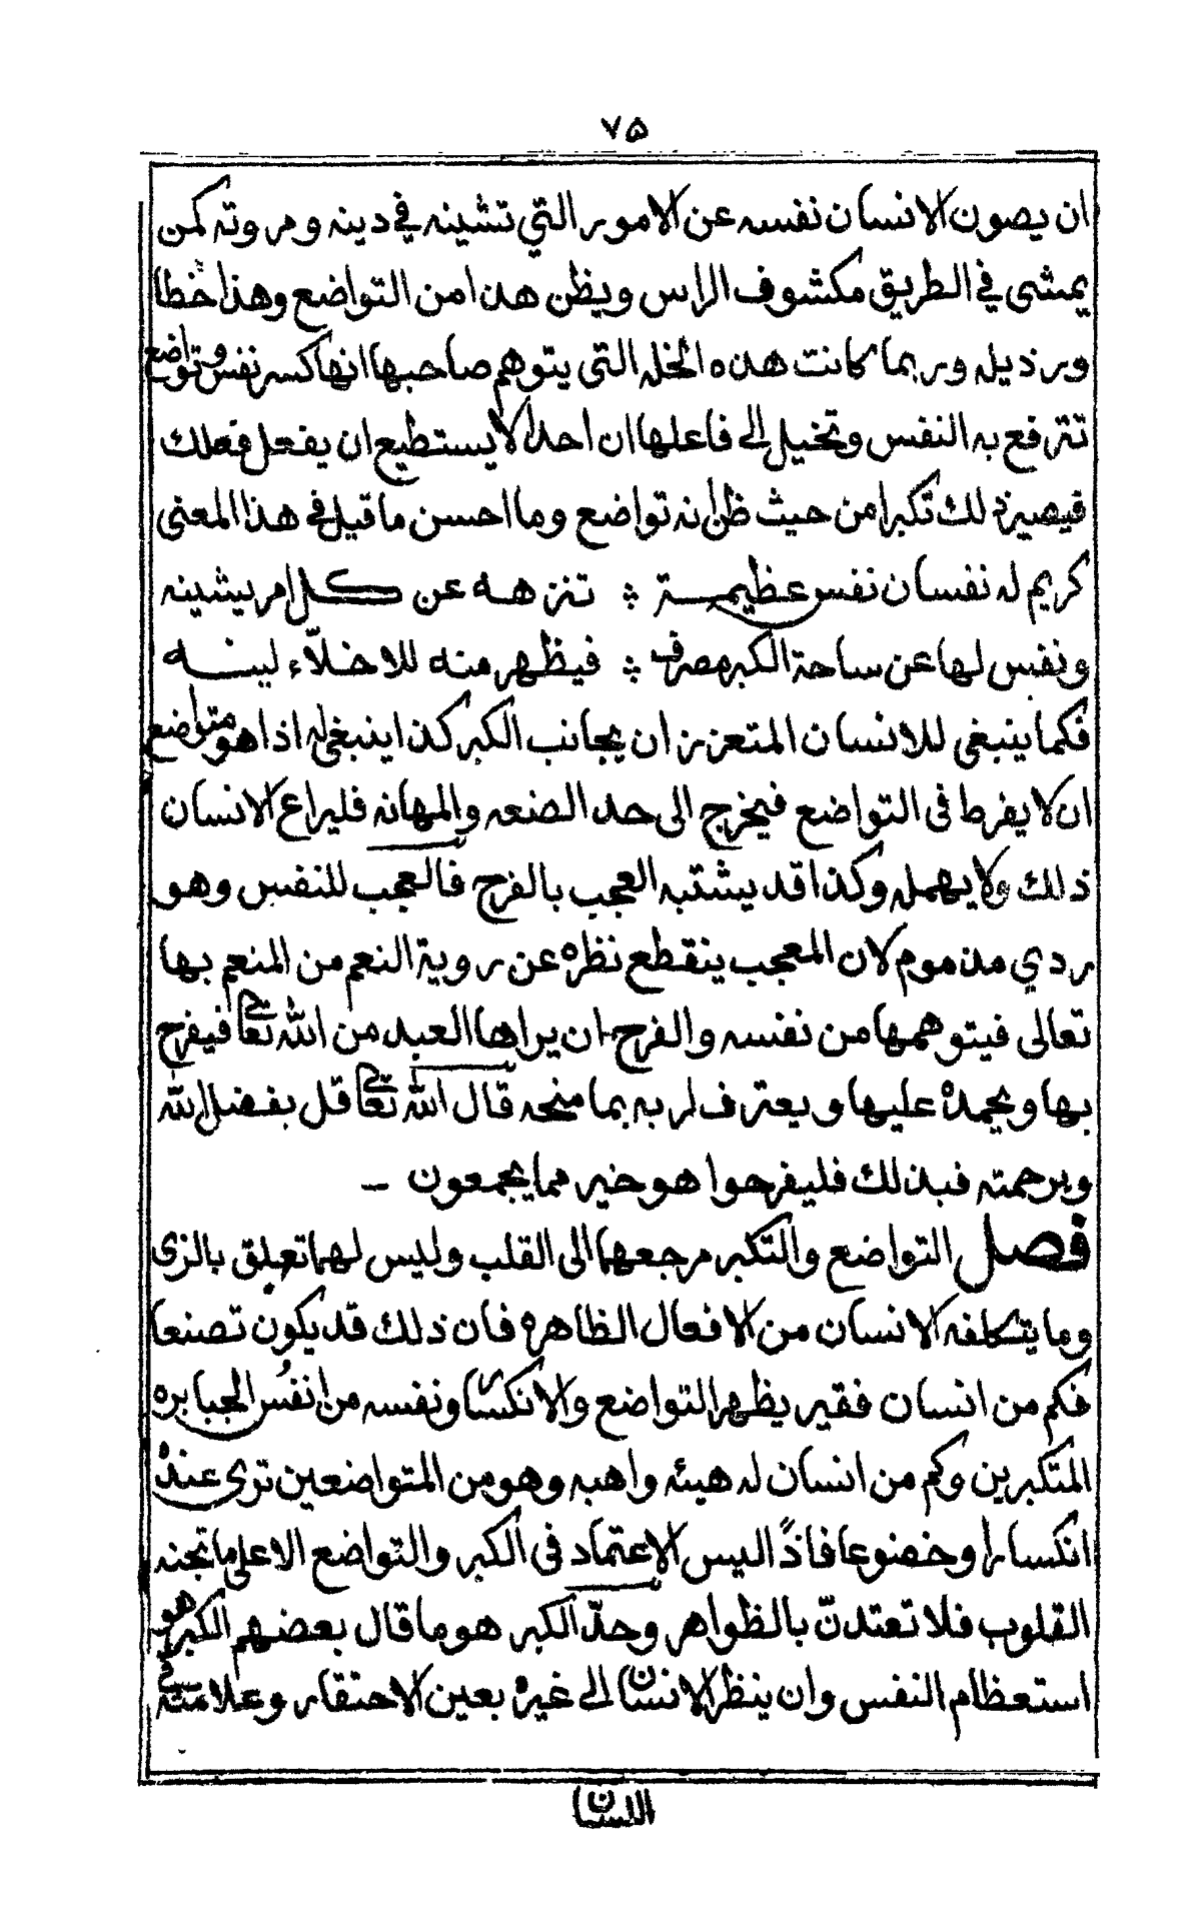 ٧٥
ان يصون الانسان نفسه عن الامور التي تشينه في دينه ومروته كمن
يمشى في الطريق مكشوف الراس ويظن هذا من التواضع وهذا خطا
ورذيله وربما كانت هذه الخله التي يتوهم صاحبها انها كسر نفس وتواضع
تترفع به النفس وتخيل الى فاعلها ان احدا لا يستطيع ان يفعل فعلك
فيصير ذلك تكبرا من حيث ظن انه تواضع وما احسن ما قيل في هذا المعنى
كريم له نفسان نفس عظيمـــة ؛ تنزهـه عن كـــل امر يشينه
ونفس لها عن ساحة الكبر مصرف ؛ فيظهر منه للاخلّاء لينـــه
فكما ينبغي للانسان المتعزز ان يجانب الكبر كذا ينبغي له اذا هو متواضع
ان لا يفرط في التواضع فيخرج الى حد الضعه والمهانه فليراع الانسان
ذلك ولا يهمله وكذا قد يشتبه العجب بالفرح فالعجب للنفس وهو
ردي مذموم لان المعجب ينقطع نظره عن روية النعم من المنعم بها
تعالى فيتوهمها من نفسه والفرح ان يراها العبد من الله تعالى فيفرح
بها ويحمده عليها ويعترف لربه بما منحه قال الله تعالى قل بفضل الله
وبرحمته فبذلك فليفرحوا هو خير مما يجمعون –
فصل التواضع والتكبر مرجعهما الى القلب وليس لهما تعلق بالزى
وما يتكلفه الانسان من الافعال الظاهره فان ذلك قد يكون تصنعا
فكم من انسان فقير يظهر التواضع والانكسار ونفسه من انفُس الجبابره
المتكبرين وكم من انسان له هيئه واهبه وهو من المتواضعين ترى عنده
انكسارا وخضوعا فاذاً ليس الاعتماد في الكبر والتواضع الا على ما تجنه
القلوب فلا تعتدنّ بالظواهر وحدّ الكبر هو ما قال بعضهم الكبر هو
استعظام النفس وان ينظر الانسان الى غيره بعين الاحتقار وعلامته في
اللسان